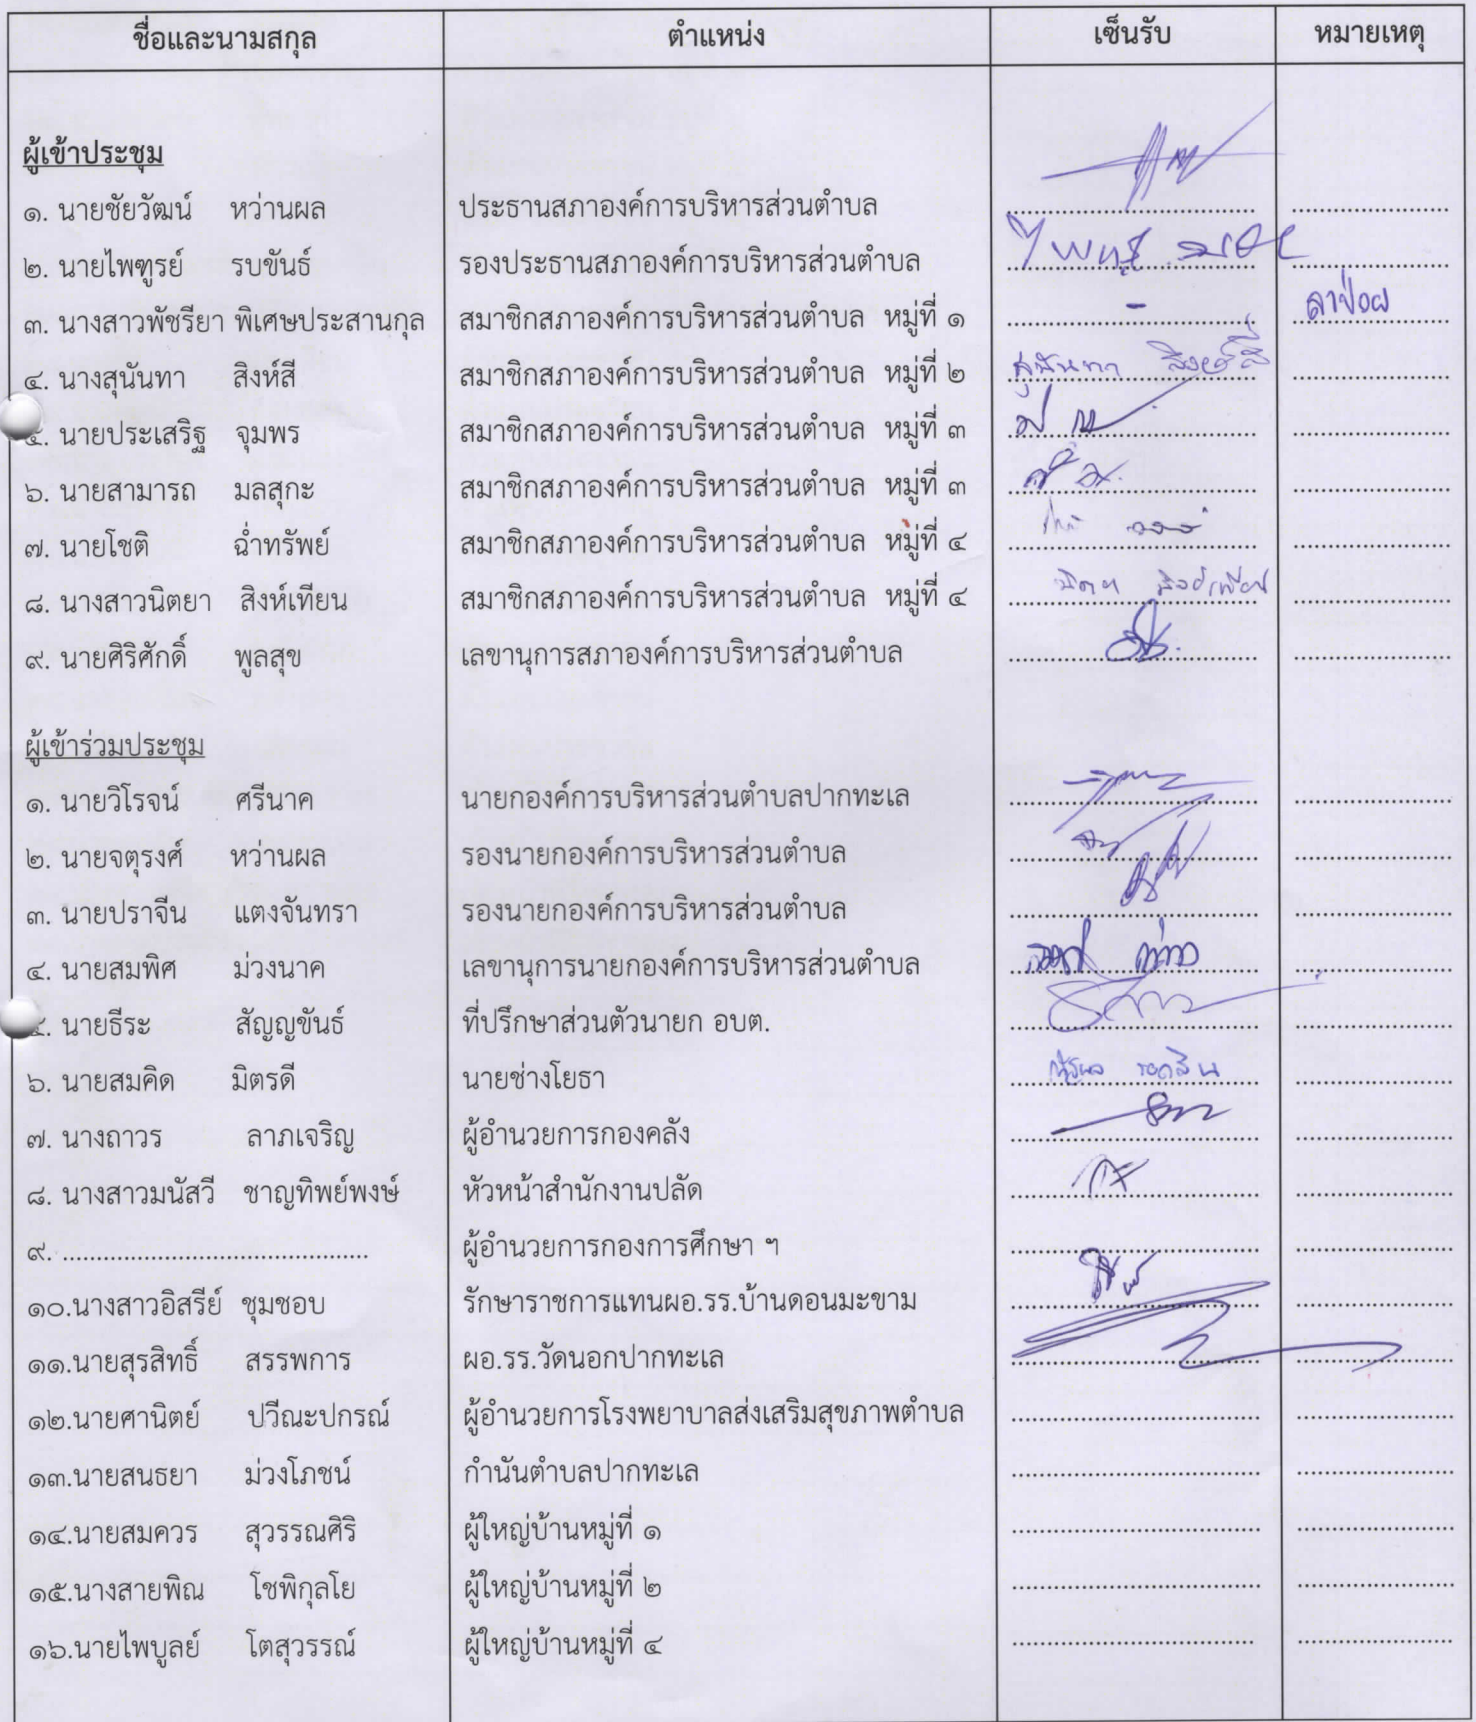 ชื่อและนามสกุล ตำแหน่ง เซ็นรับ หมายเหตุ
ผู้เข้าประชุม
๑. นายชัยวัฒน์ หว่านผล ประธานสภาองค์การบริหารส่วนตำบล ........................................ ........................
๒. นายไพฑูรย์ รบขันธ์ รองประธานสภาองค์การบริหารส่วนตำบล ........................................ ........................
๓. นางสาวพัชรียา พิเศษประสานกุล สมาชิกสภาองค์การบริหารส่วนตำบล หมู่ที่ ๑ - ลาป่วย
๔. นางสุนันทา สิงห์สี สมาชิกสภาองค์การบริหารส่วนตำบล หมู่ที่ ๒ สุนันทา สิงห์สี ........................
๕. นายประเสริฐ จุมพร สมาชิกสภาองค์การบริหารส่วนตำบล หมู่ที่ ๓ ........................................ ........................
๖. นายสามารถ มลสุกะ สมาชิกสภาองค์การบริหารส่วนตำบล หมู่ที่ ๓ ........................................ ........................
๗. นายโชติ ฉ่ำทรัพย์ สมาชิกสภาองค์การบริหารส่วนตำบล หมู่ที่ ๔ ........................................ ........................
๘. นางสาวนิตยา สิงห์เทียน สมาชิกสภาองค์การบริหารส่วนตำบล หมู่ที่ ๔ นิตยา สิงห์เทียน ........................
๙. นายศิริศักดิ์ พูลสุข เลขานุการสภาองค์การบริหารส่วนตำบล ........................................ ........................
ผู้เข้าร่วมประชุม
๑. นายวิโรจน์ ศรีนาค นายกองค์การบริหารส่วนตำบลปากทะเล ........................................ ........................
๒. นายจตุรงศ์ หว่านผล รองนายกองค์การบริหารส่วนตำบล ........................................ ........................
๓. นายปราจีน แตงจันทรา รองนายกองค์การบริหารส่วนตำบล ........................................ ........................
๔. นายสมพิศ ม่วงนาค เลขานุการนายกองค์การบริหารส่วนตำบล ........................................ ........................
๕. นายธีระ สัญญขันธ์ ที่ปรึกษาส่วนตัวนายก อบต. ........................................ ........................
๖. นายสมคิด มิตรดี นายช่างโยธา ........................................ ........................
๗. นางถาวร ลาภเจริญ ผู้อำนวยการกองคลัง ........................................ ........................
๘. นางสาวมนัสวี ชาญทิพย์พงษ์ หัวหน้าสำนักงานปลัด ........................................ ........................
๙. ............................................. ผู้อำนวยการกองการศึกษา ฯ ........................................ ........................
๑๐.นางสาวอิสรีย์ ชุมชอบ รักษาราชการแทนผอ.รร.บ้านดอนมะขาม ........................................ ........................
๑๑.นายสุรสิทธิ์ สรรพการ ผอ.รร.วัดนอกปากทะเล ........................................ ........................
๑๒.นายศานิตย์ ปวีณะปกรณ์ ผู้อำนวยการโรงพยาบาลส่งเสริมสุขภาพตำบล ........................................ ........................
๑๓.นายสนธยา ม่วงโภชน์ กำนันตำบลปากทะเล ........................................ ........................
๑๔.นายสมควร สุวรรณศิริ ผู้ใหญ่บ้านหมู่ที่ ๑ ........................................ ........................
๑๕.นางสายพิณ โชพิกุลโย ผู้ใหญ่บ้านหมู่ที่ ๒ ........................................ ........................
๑๖.นายไพบูลย์ โตสุวรรณ์ ผู้ใหญ่บ้านหมู่ที่ ๔ ........................................ ........................